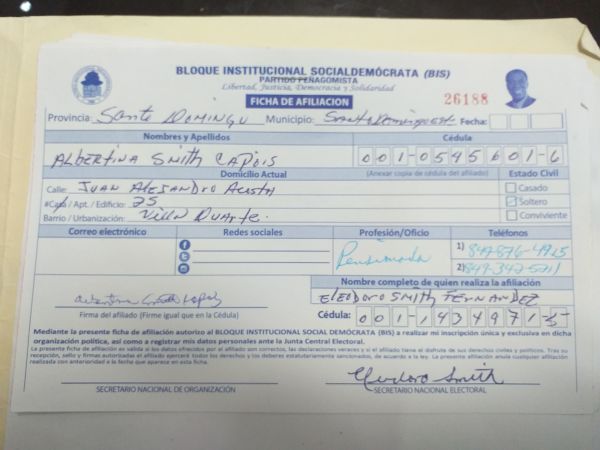 BLOQUE INSTITUCIONAL SOCIALDEMÓCRATA (BIS)
PARTIDO PEÑAGOMISTA
Libertad, Justicia, Democracia y Solidaridad
FICHA DE AFILIACION
26188
Provincia: Santo Domingo Municipio: Santo Domingo Est Fecha:
Nombres y Apellidos Cédula
Albertina Smith Capois 001-0545601-6
Domicilio Actual (Anexar copia de cédula del afiliado) Estado Civil
Calle: Juan Alejandro Acosta Casado
#Casa / Apt. / Edificio: 25 Soltero
Barrio / Urbanización: Villa Duarte. Conviviente
Correo electrónico Redes sociales Profesión/Oficio Teléfonos
Pensionada 1) 849-876-4925
2) 849-342-5711
Nombre completo de quien realiza la afiliación
Eleodoro Smith Fernandez
Firma del afiliado (Firme igual que en la Cédula) Cédula: 001-1434971-5
Mediante la presente ficha de afiliación autorizo al BLOQUE INSTITUCIONAL SOCIAL DEMÓCRATA (BIS) a realizar mi inscripción única y exclusiva en dicha
organización política, así como a registrar mis datos personales ante la Junta Central Electoral.
La presente ficha de afiliación es válida si los datos ofrecidos por el afiliado son correctos, las declaraciones veraces y si el afiliado tiene el disfrute de sus derechos civiles y políticos. Tras su
recepción, sello y firmas autorizadas el afiliado ejercerá todos los derechos y los deberes estatutariamente sancionados, de acuerdo a la ley. La presente afiliación anula cualquier afiliación
realizada con anterioridad a la fecha que aparece en esta ficha.
Eleodoro Smith
SECRETARIO NACIONAL DE ORGANIZACIÓN SECRETARIO NACIONAL ELECTORAL